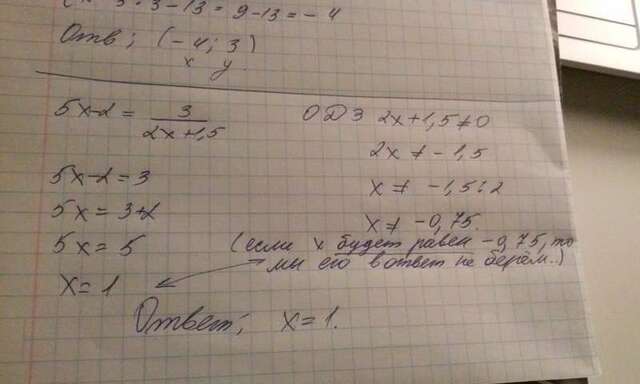 x = 3·3-13 = 9-13 = -4
Отв; (-4; 3)
x y
5x-2 = 3/(2x+1,5)
ОДЗ 2x+1,5≠0
2x ≠ -1,5
5x-2=3
x ≠ -1,5:2
5x = 3+2
x ≠ -0,75.
5x = 5
(если x будет равен -0,75, то
мы его в ответ не берём..)
x=1
Ответ; x=1.